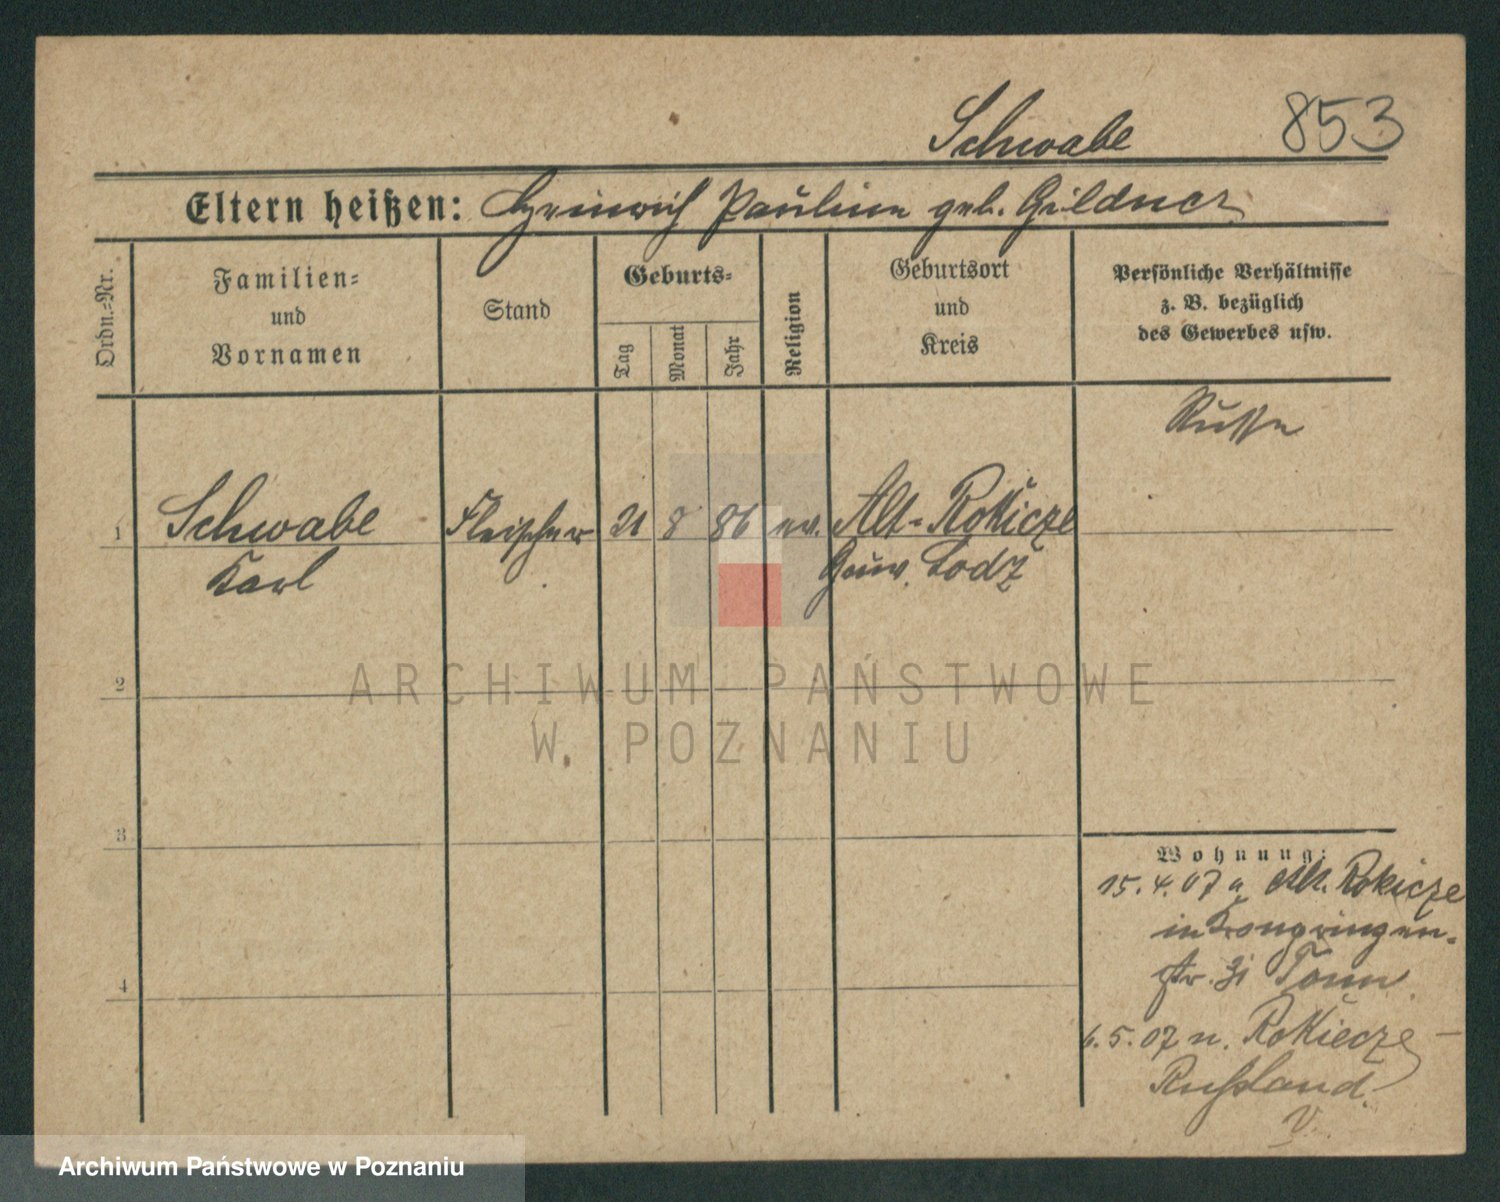 Schwabe 853
Eltern heißen: Heinrich Pauline geb. Gildner
Ordn.=Nr.
Familien=
und
Vornamen
Stand
Geburts=
Tag
Monat
Jahr
Religion
Geburtsort
und
Kreis
Persönliche Verhältnisse
z. B. bezüglich
des Gewerbes usw.
Russe
1 Schwabe Fleischer 21 8 86 ev. Alt-Rokicze
Karl Gouv. Lodz
2
3
4
Wohnung:
15.4.07 a Alt. Rokicze
in Kronprinzen-
str. 31
6.5.07 n. Rokicze -
Rußland.
V.
ARCHIWUM PAŃSTWOWE
W POZNANIU
Archiwum Państwowe w Poznaniu